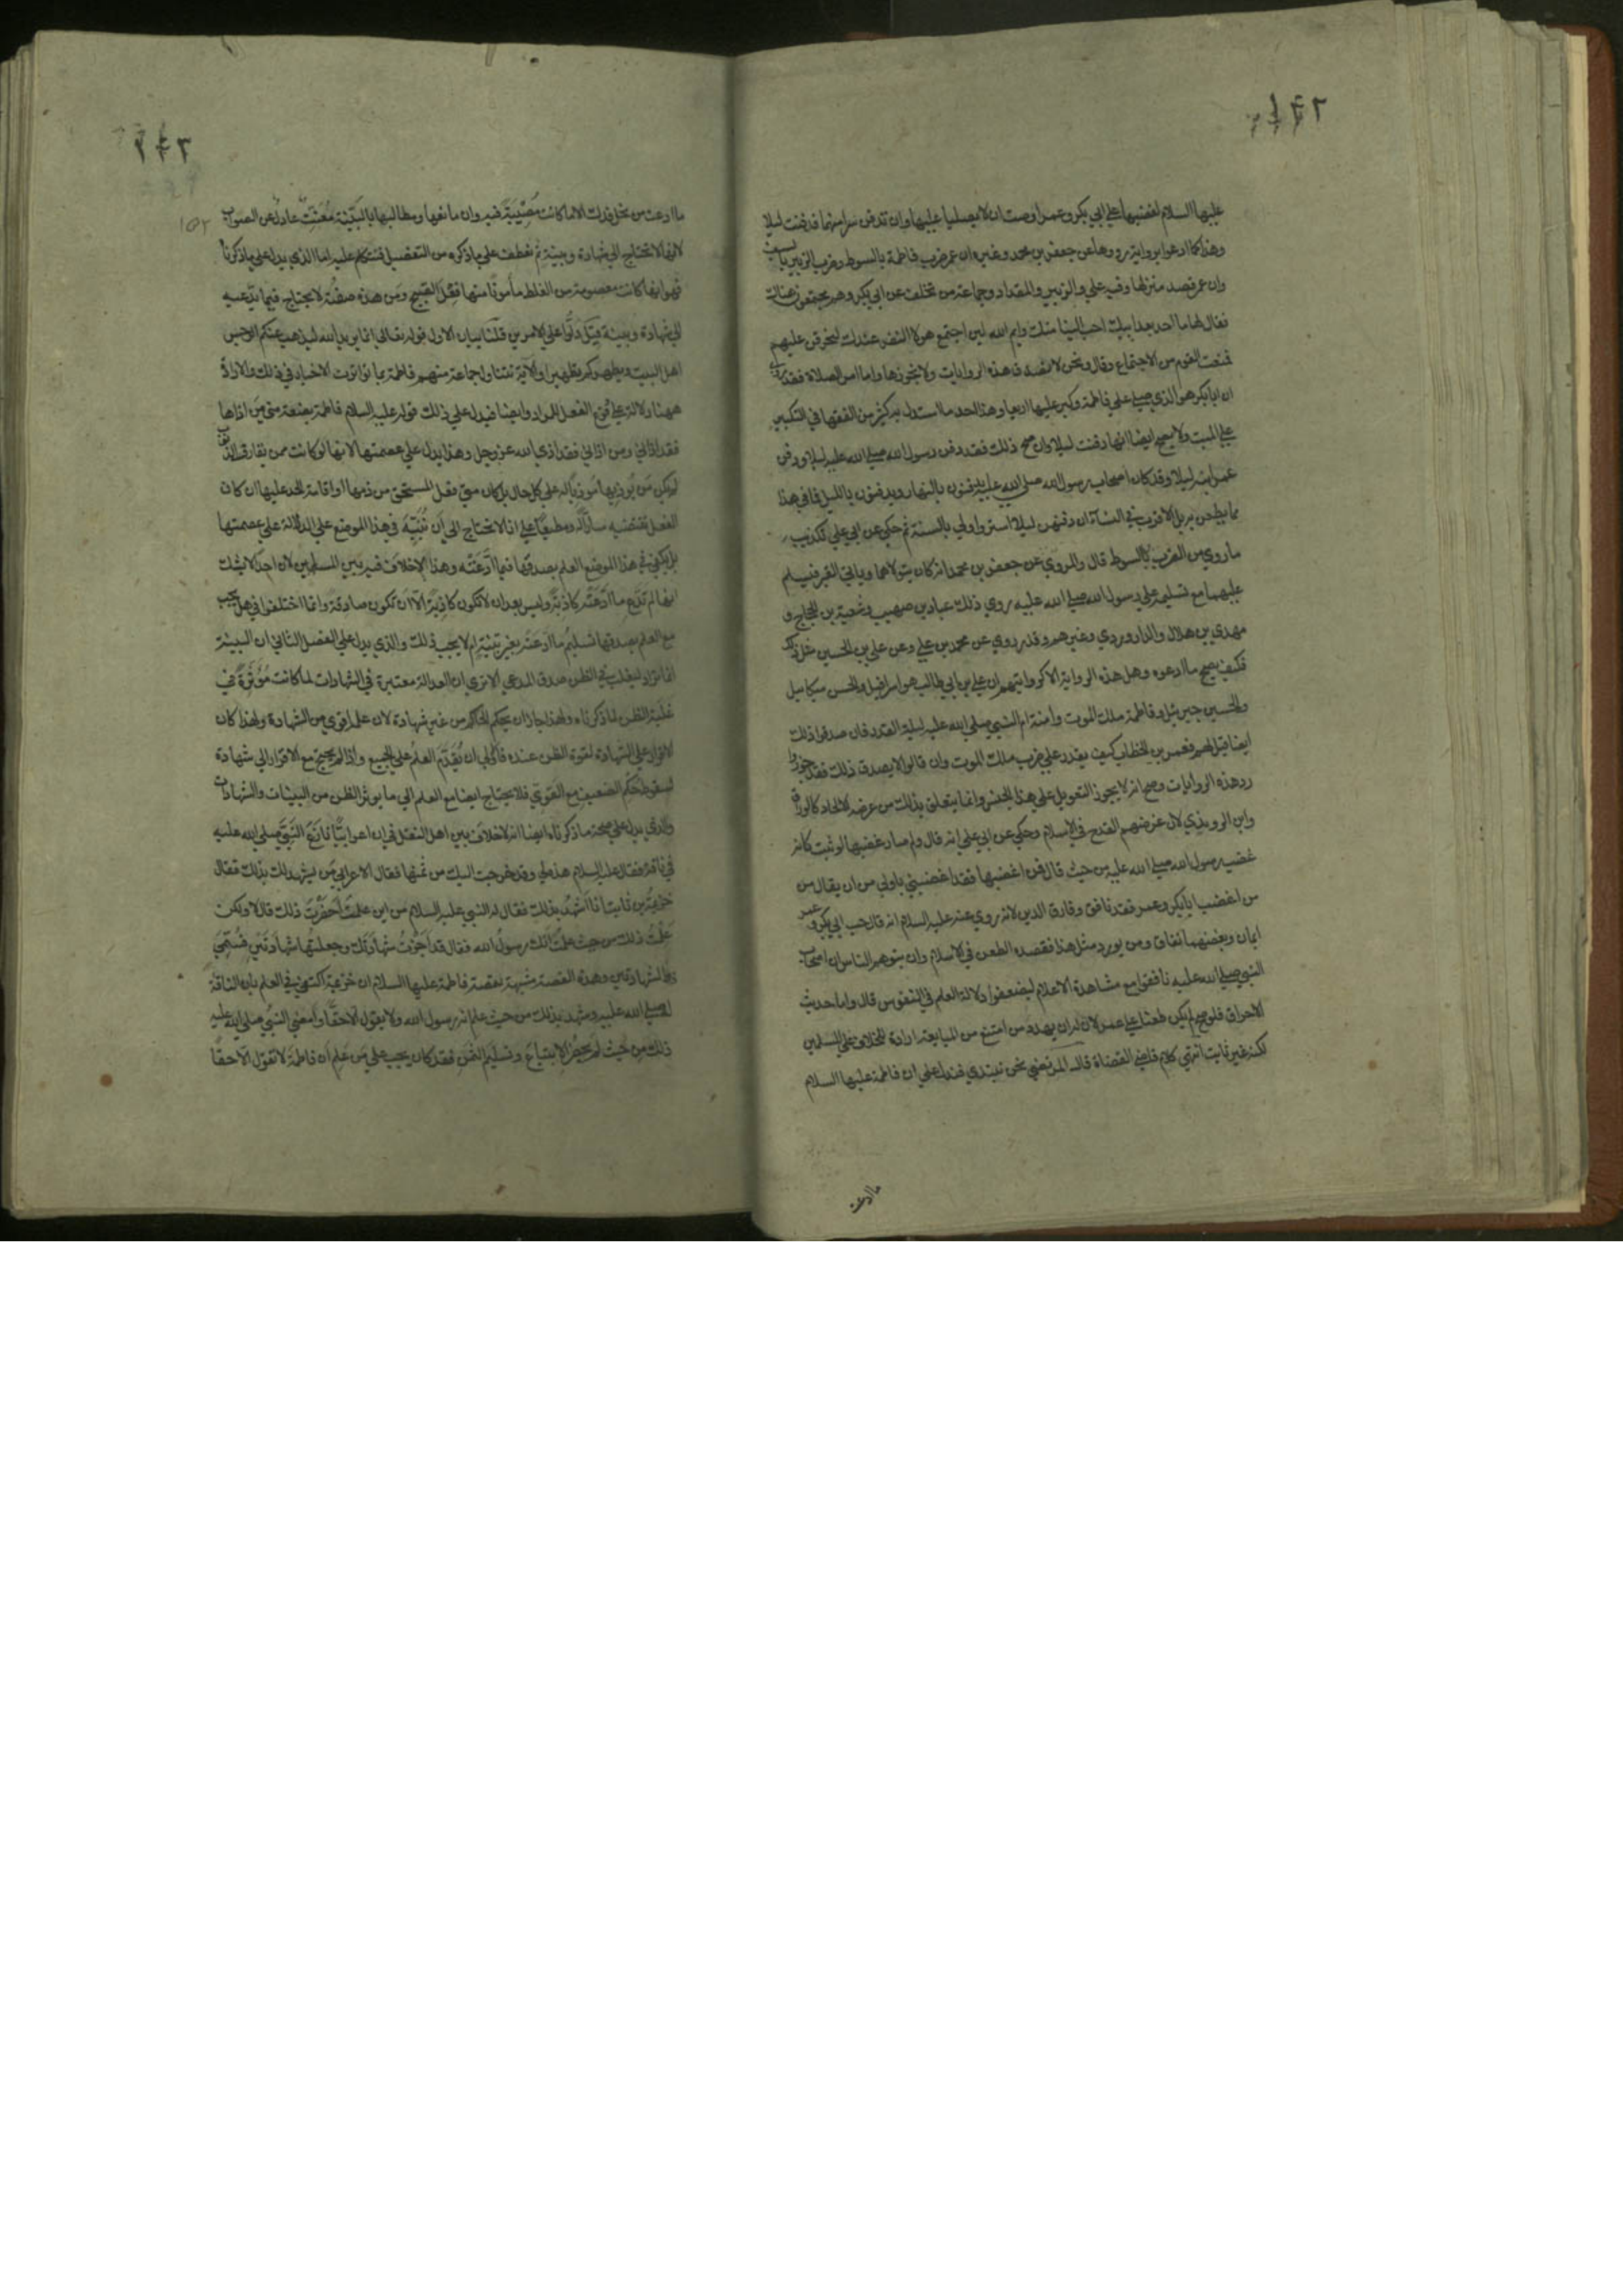 عليها السلام لغضبها علي ابي بكر وعمر اوصت ان لا يصليا عليها وان تدفن سرا منهما فدفنت ليلا
وهذا كما ادعوا برواية رووها عن جعفر بن محمد وغيره ان عمر ضرب فاطمة بالسوط وضرب الزبير بالسيف
وان عمر قصد منزلها وفيه علي والزبير والمقداد وجماعة من تخلف عن ابي بكر وهم مجتمعون هناك
فقال لها ما احد بعد ابيك احب الينا منك وايم الله لئن اجتمع هولا النفر عندك لنحرقن عليهم
فمنعت القوم من الاجتماع وقال ونحن لا نصدق هذه الروايات ولا نجوزها واما امر الصلاة فقد روي
ان ابا بكر هو الذي صلي علي فاطمة وكبر عليها اربعا وهذا احد ما استدل به كثير من الفقها في التكبير
علي الميت ولا يصح ايضا انها دفنت ليلا وان صح ذلك فقد دفن رسول الله صلي الله عليه ليلا ودفن
عمر ابنه ليلا وقد كان اصحاب رسول الله صلي الله عليه يدفنون بالنهار ويدفنون بالليل فما في هذا
مما يطعن به بل الاقرب في النسآء ان دفنهن ليلا استر واولي بالسنة ثم حكي عن ابي علي تكذيب
ما روي من الضرب بالسوط قال والمروي عن جعفر بن محمد انه كان يتولاهما وياتي القبر فيسلم
عليهما مع تسليمه علي رسول الله صلي الله عليه روي ذلك عباد بن صهيب وشعبة بن الحجاج و
مهدي بن هلال والداروردي وغيرهم وقد روي عن محمد بن علي وعن علي بن الحسين مثل ذلك
فكيف يصح ما ادعوه وهل هذه الرواية الا كروايتهم ان علي بن ابي طالب هو اسرافيل والحسن ميكاييل
والحسين جبرئيل وفاطمة ملك الموت وامنة ام النبي صلي الله عليه ليلة القدر فان صدقوا ذلك
ايضا قيل لهم فعمر بن الخطاب كيف يقدر علي ضرب ملك الموت وان قالوا لا يصدق ذلك فقد جوزوا
رد هذه الروايات وصح انه لا يجوز التعويل علي هذا الخبر وانما يتعلق بذلك من غرضه الالحاد كالوراق
وابن الرويذي لان غرضهم القدح في الاسلام وحكي عن ابي علي انه قال ولم صار غضبها لو ثبت كانه
غضب رسول الله صلي الله عليه من حيث قال فمن اغضبها فقد اغضبني باولي من ان يقال من
من اغضب ابا بكر وعمر فقد نافق وفارق الدين لانه روي عنه عليه السلام انه قال حب ابي بكر وعمر
ايمان وبغضهما نفاق ومن يورد مثل هذا فقصده الطعن في الاسلام وان يتوهم الناس ان اصحاب
النبي صلي الله عليه نافقوا مع مشاهدة الاعلام ليضعفوا دلالة العلم في النفوس قال واما حديث
الاحراق فلو صح لم يكن طعنا علي عمر لان له ان يهدد من امتنع من المبايعة ارادة للخلاف علي المسلمين
لكنه غير ثابت انتهي كلام قاضي القضاة قال المرتضي نحن نبتدي فندل علي ان فاطمة عليها السلام
ما ادعت
ما ادعت من نحل فدك الا ما كانت مصيبة فيه وان مانعها ومطالبها بالبينة متعنت عادل عن الصواب
لانها لا تحتاج الي شهادة وبينة ثم نعطف علي ما ذكره من التفصيل فنتكلم عليه اما الذي يدل علي ما ذكرنا
فهو انها كانت معصومة من الغلط مأمونا منها فعل القبيح ومن هذه صفته لا يحتاج فيما يدعيه
الي شهادة وبينة فان قيل دلوا علي الامرين قلنا بيان الاول قوله تعالي انما يريد الله ليذهب عنكم الرجس
اهل البيت ويطهركم تطهيرا والآية تتناول جماعة منهم فاطمة بما تواترت الاخبار في ذلك والارادة
ههنا دلالة علي وقوع الفعل المراد وايضا فيدل علي ذلك قوله عليه السلام فاطمة بضعة مني من اذاها
فقد اذاني ومن اذاني فقد اذي الله عز وجل وهذا يدل علي عصمتها لانها لو كانت ممن يقارف الذنوب
لم يكن من يوذيها موذيا له علي كل حال بل كان متي فعل المستحق من ذمها او اقامة الحد عليها ان كان
الفعل يقتضيه سارا له ومطيعا علي انا لا نحتاج الي ان ننبه في هذا الموضع علي الدلالة علي عصمتها
بل يكفي في هذا الموضع العلم بصدقها فيما ادعته وهذا لا خلاف فيه بين المسلمين لان احدا لا يشك
انها لم تدع ما ادعته كاذبة وليس بعد ان لا تكون كاذبة الا ان تكون صادقة وانما اختلفوا في هل يجب
مع العلم بصدقها تسليم ما ادعته بغير بينة ام لا يجب ذلك والذي يدل علي الفصل الثاني ان البينة
انما تراد ليغلب في الظن صدق المدعي الا تري ان العدالة معتبرة في الشهادات لما كانت موثرة في
غلبة الظن لما ذكرناه ولهذا جاز ان يحكم الحاكم من غير شهادة لان علمه اقوي من الشهادة ولهذا كان
الاقرار اقوي من الشهادة لقوة الظن عنده فاولي ان يقدم العلم علي الجميع واذا لم يحتج مع الاقرار الي شهادة
لسقوط حكم الضعيف مع القوي فلا يحتاج ايضا مع العلم الي ما يوثر الظن من البينات والشهادات
والذي يدل علي صحة ما ذكرناه ايضا انه لا خلاف بين اهل النقل في ان اعرابيا نازع النبي صلي الله عليه
في ناقة فقال عليه السلام هذه لي وقد خرجت اليك من ثمنها فقال الاعرابي من يشهد لك بذلك فقال
خزيمة بن ثابت انا اشهد بذلك فقال له النبي عليه السلام من اين علمت احضرت ذلك قال لا ولكن
علمت ذلك من حيث علمت انك رسول الله فقال قد اجزت شهادتك وجعلتها شهادتين فسمي
ذا الشهادتين وهذه القصة مشبهة لقصة فاطمة عليها السلام ان خزيمة اكتفي في العلم بان الناقة
له صلي الله عليه وشهد بذلك من حيث علم انه رسول الله ولا يقول الا حقا وامضي النبي صلي الله عليه
ذلك من حيث لم يحضر الابتياع وتسليم الثمن فقد كان يجب علي من علم ان فاطمة لا تقول الا حقا